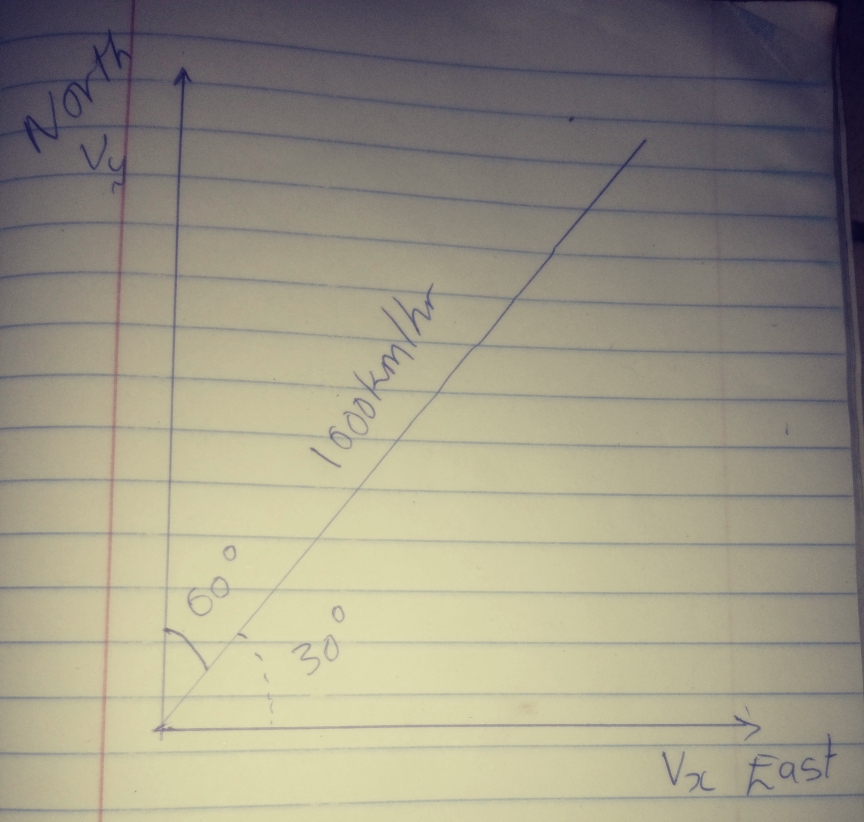 North
Vy
1000km/hr
60°
30°
Vx East